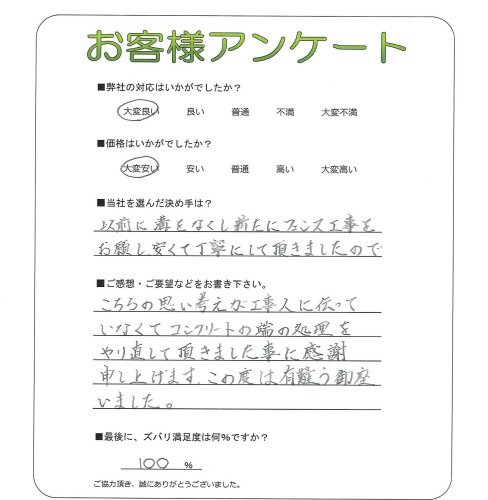 お客様アンケート
■弊社の対応はいかがでしたか？
大変良い 良い 普通 不満 大変不満
■価格はいかがでしたか？
大変安い 安い 普通 高い 大変高い
■当社を選んだ決め手は？
以前に溝をなくし新たにフェンス工事を
お願し、安くて丁寧にして頂きましたので
■ご感想・ご要望などをお書き下さい。
こちらの思い考えが工事人に伝って
いなくてコンクリートの端の処理を
やり直して頂きました事に感謝
申し上げます。この度は有難う御座
いました。
■最後に、ズバリ満足度は何％ですか？
100 ％
ご協力頂き、誠にありがとうございました。